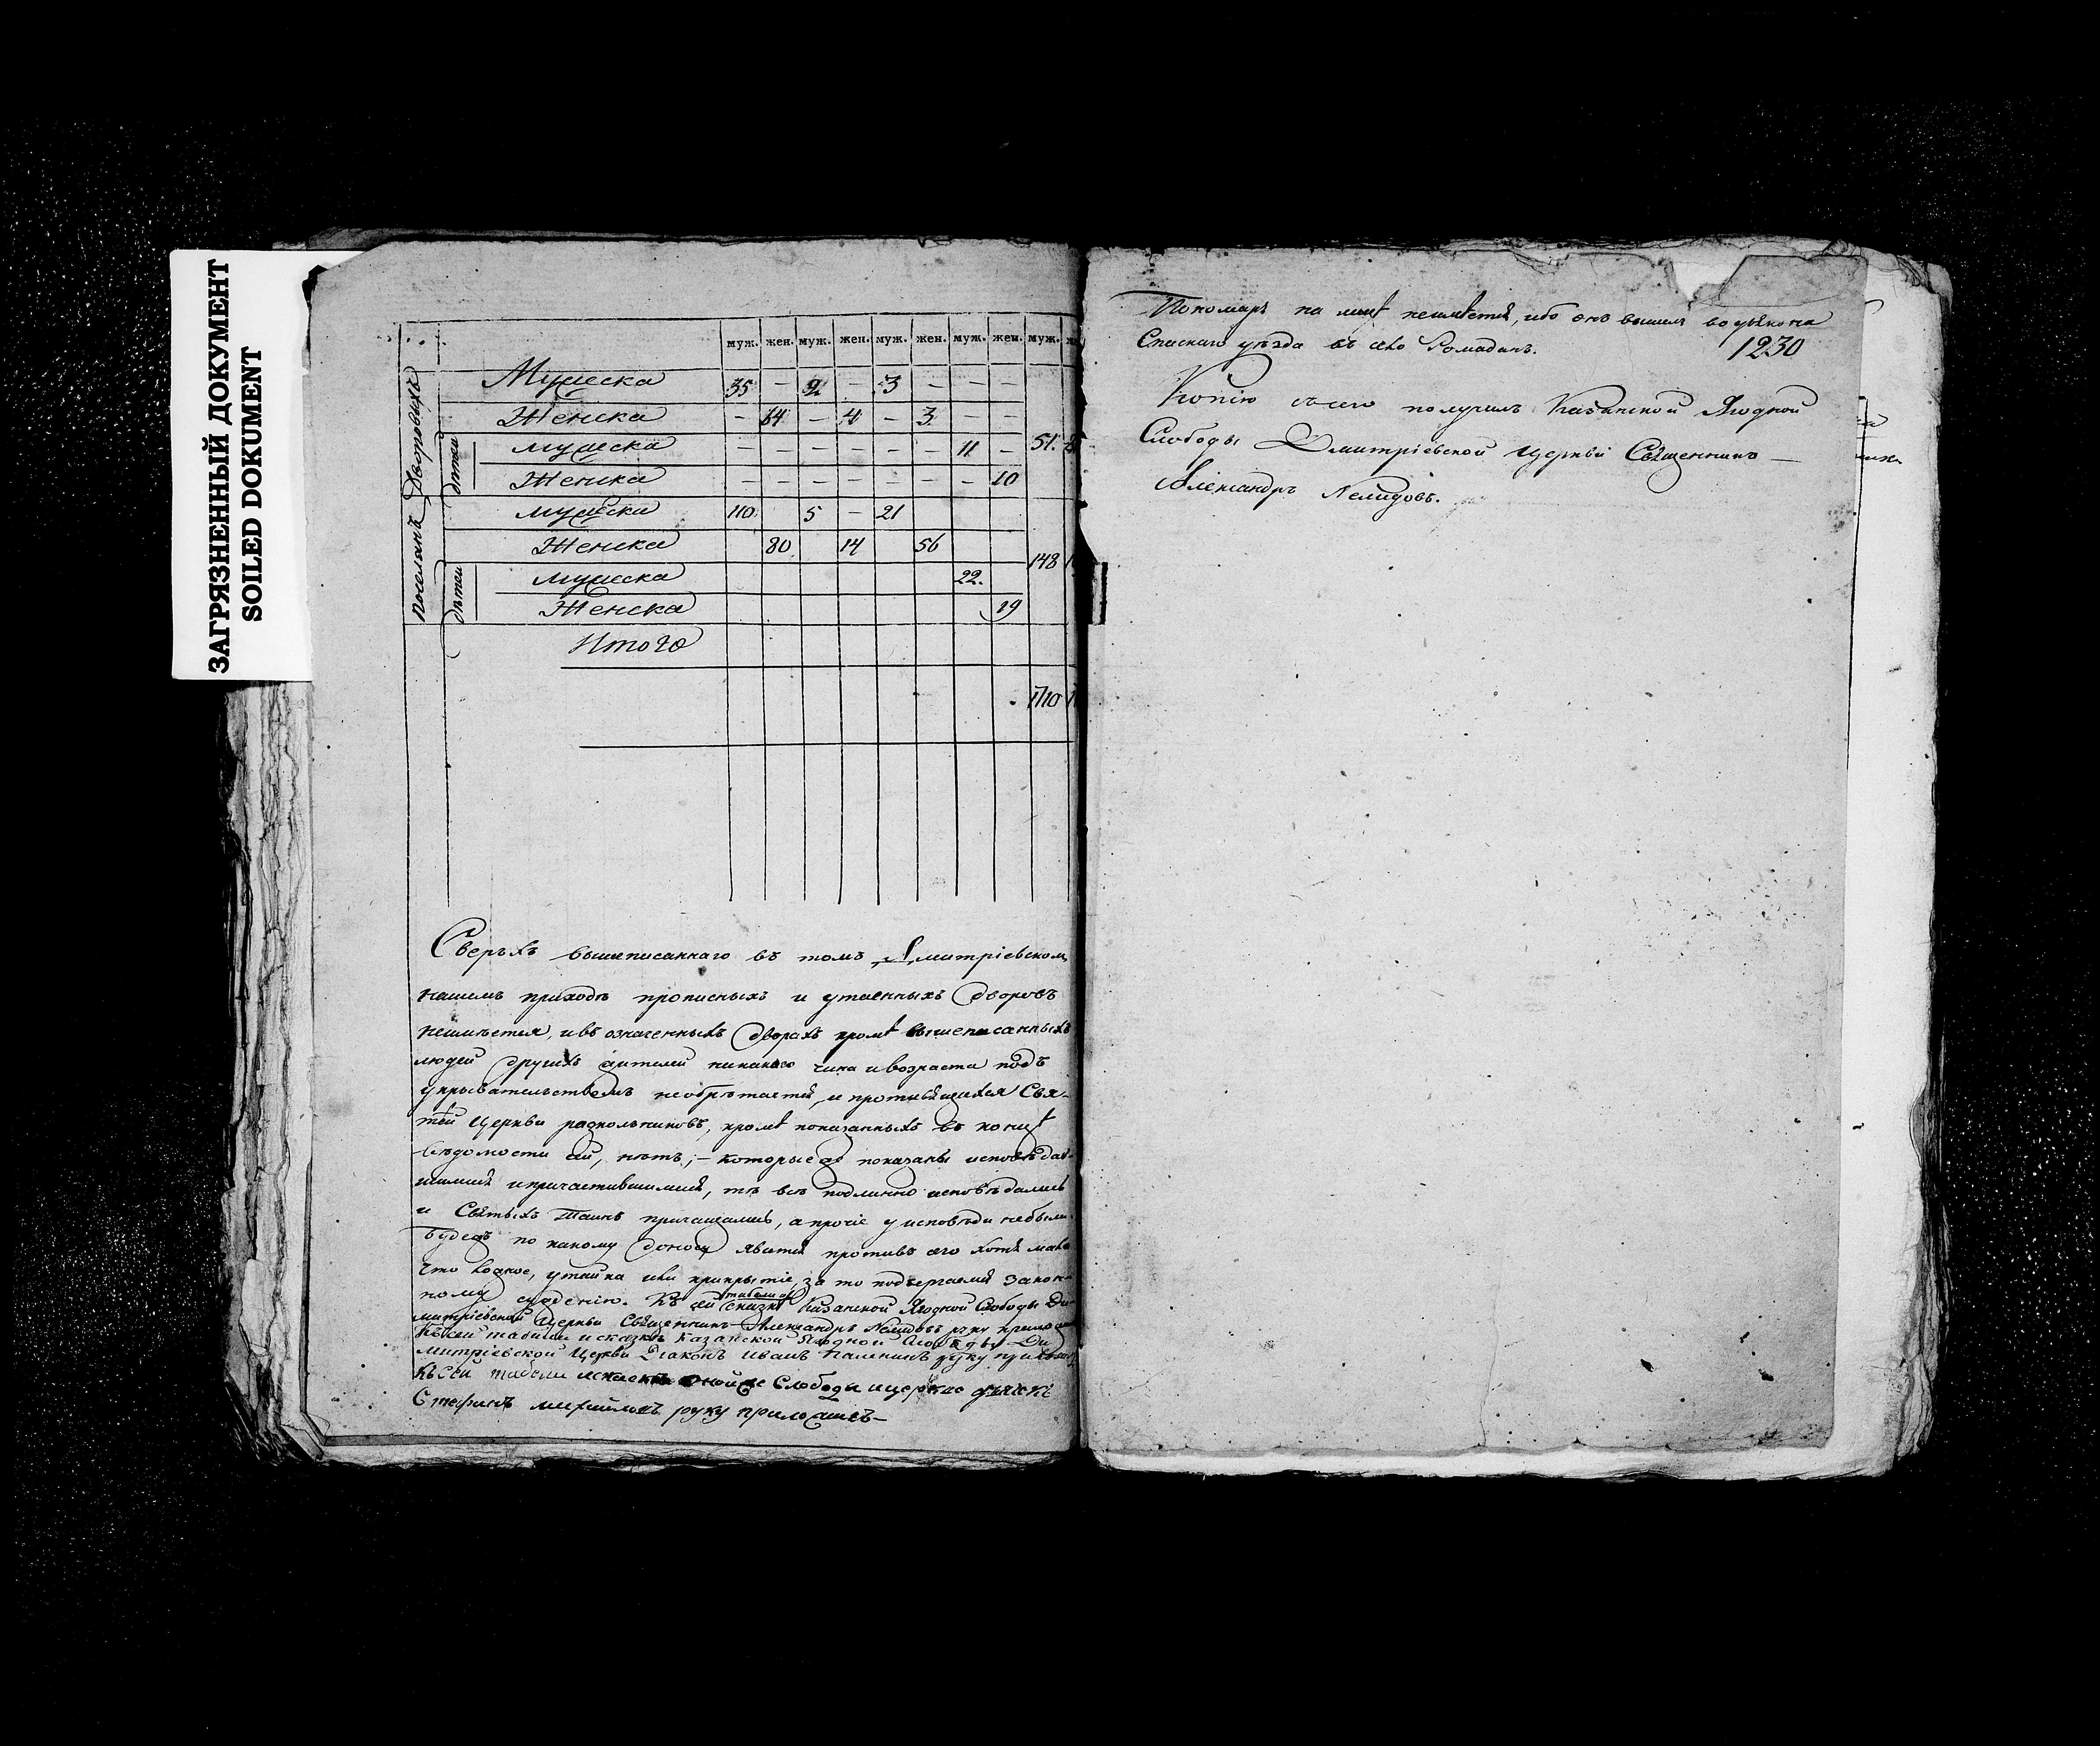 ЗАГРЯЗНЕННЫЙ ДОКУМЕНТ
SOILED DOKUMENT
муж. жен. муж. жен. муж. жен. муж. жен. муж.
Дворовыхъ
Мужеска 35 — 2 — 3 — — —
Женска — 64 — 4 — 3 — —
дѣтей
мужеска — — — — — — 11 — 51.
Женска — — — — — — — 10
поселянъ
мужеска 110 5 — 21
Женска 80 14 56 148
дѣтей
мужеска 22.
Женска 29
Итого
1710
Сверьхъ вышеписаннаго въ томъ Димитріевскомъ
нашемъ приходѣ прописныхъ и утаенныхъ дворовъ
неимѣется, ивъ означенныхъ дворахъ кромѣ вышеписанныхъ
людей другихъ жителей никакого чина ивозраста подъ
укрывательствомъ необрѣтается, и противящихся Свя-
тѣй Церкви раскольниковъ, кромѣ показанныхъ въ концѣ
вѣдомости сей, нѣтъ; — которые же показаны исповѣдав-
шимися ипричастившимися, тѣ всѣ подлинно исповѣдались
и Святыхъ Таинъ причащались, а прочіе уисповѣди небыли.
Будежъ по какому доносу явится противъ сего хотя мало
что ложное, утайка или прикрытіе, за то подвергаемся закон-
ному сужденію. Къ сей табели и сказкѣ Казанской Ягодной Слободы Ди-
митріевской Церкви Священникъ Александръ Нелидовъ руку приложилъ
Къ сей табели исказкѣ Казанской Ягодной Слободы Ди
митріевской Церкви Діаконъ Иванъ руку приложилъ
Къ сей табели исказкѣ оной же Слободы ицеркви дьячекъ
Стефанъ Михайловъ руку приложилъ —
Пономарь на лицѣ неимѣется, ибо онъ вышелъ во дьякона
Спаскаго уѣзда въ село Ромаданъ.
1230
Копію съ сего получилъ Казанской Ягодной
Слободы Димитріевской Церкви Священникъ —
Александръ Нелидовъ.